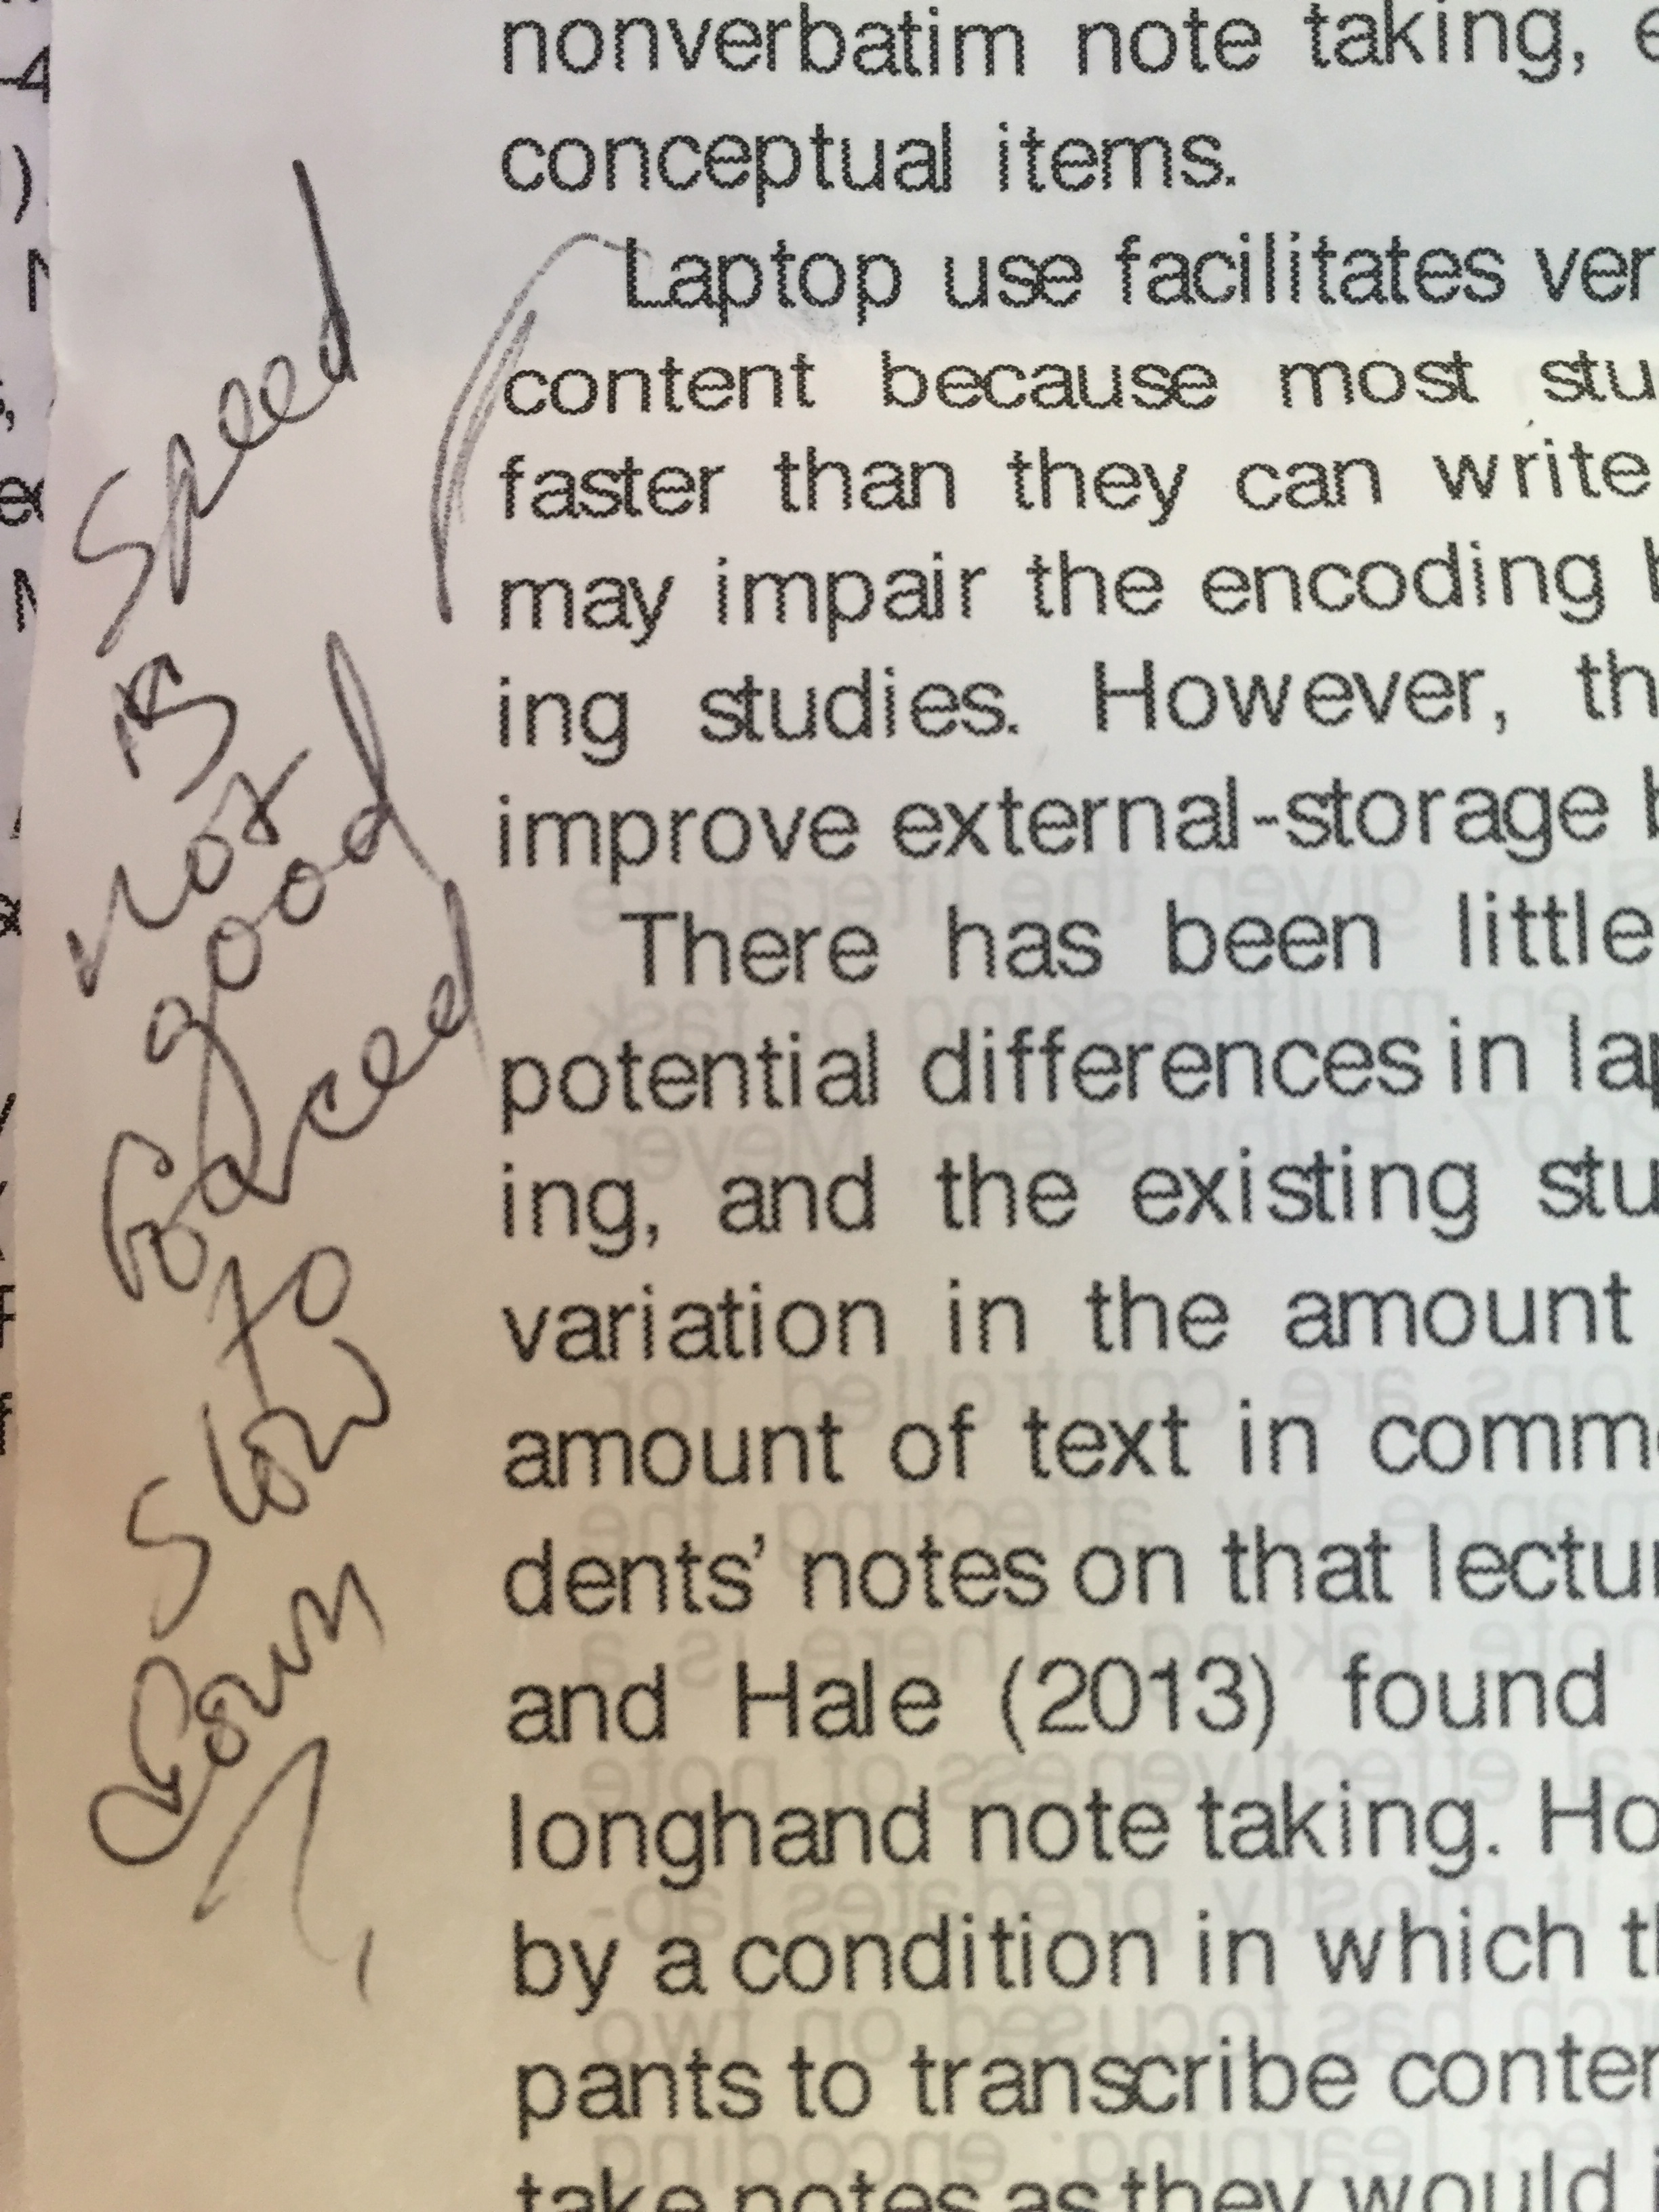 nonverbatim note taking, e
conceptual items.
Laptop use facilitates ver
content because most stu
faster than they can write
may impair the encoding
ing studies. However, th
improve external-storage
There has been little
potential differences in lap
ing, and the existing stu
variation in the amount
amount of text in comm
dents' notes on that lectur
and Hale (2013) found
longhand note taking. Ho
by a condition in which th
pants to transcribe conten
take notes as they would i
Speed
is
not
good
Forced
to
slow
down